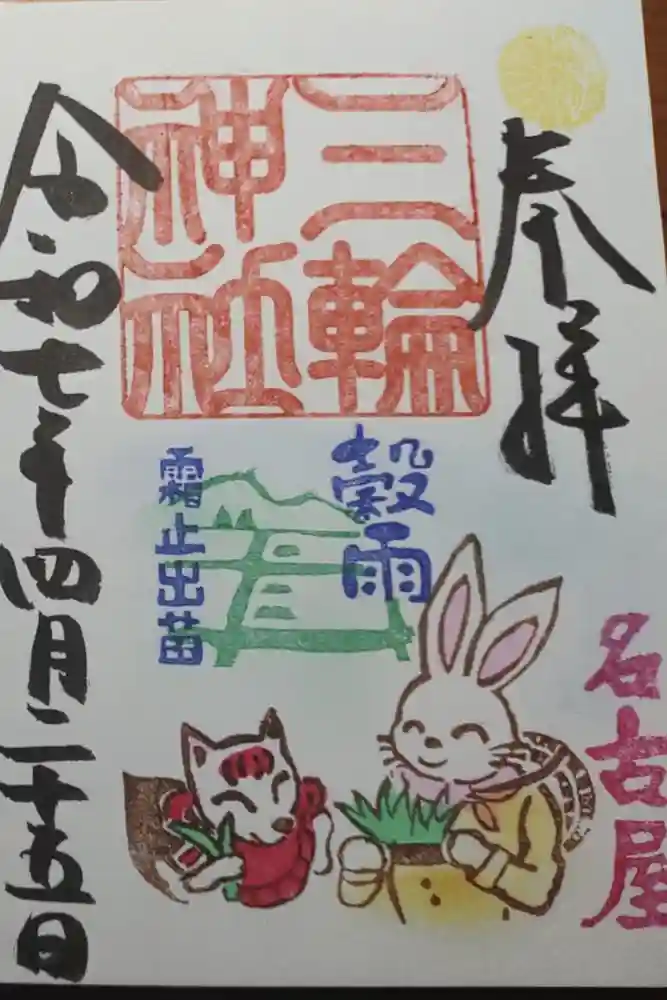 奉拝
名古屋
三輪
神社
穀雨
霜止出苗
令和七年四月二十五日